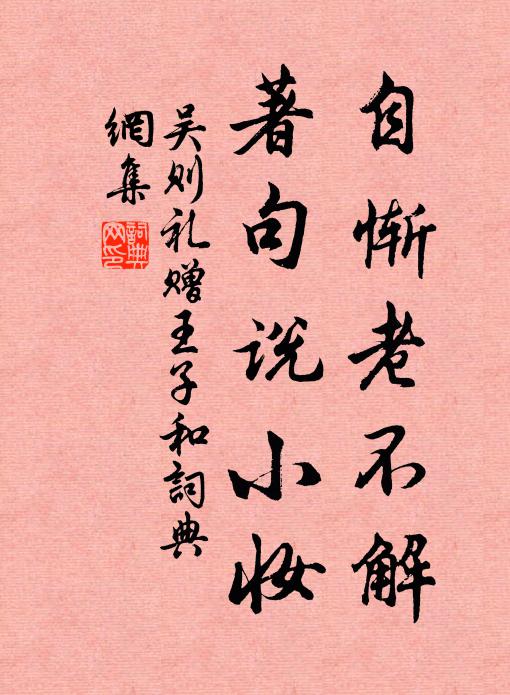 自惭老不解
著句说小妆
吴则礼赠王子和詞典
網集
詞典网印